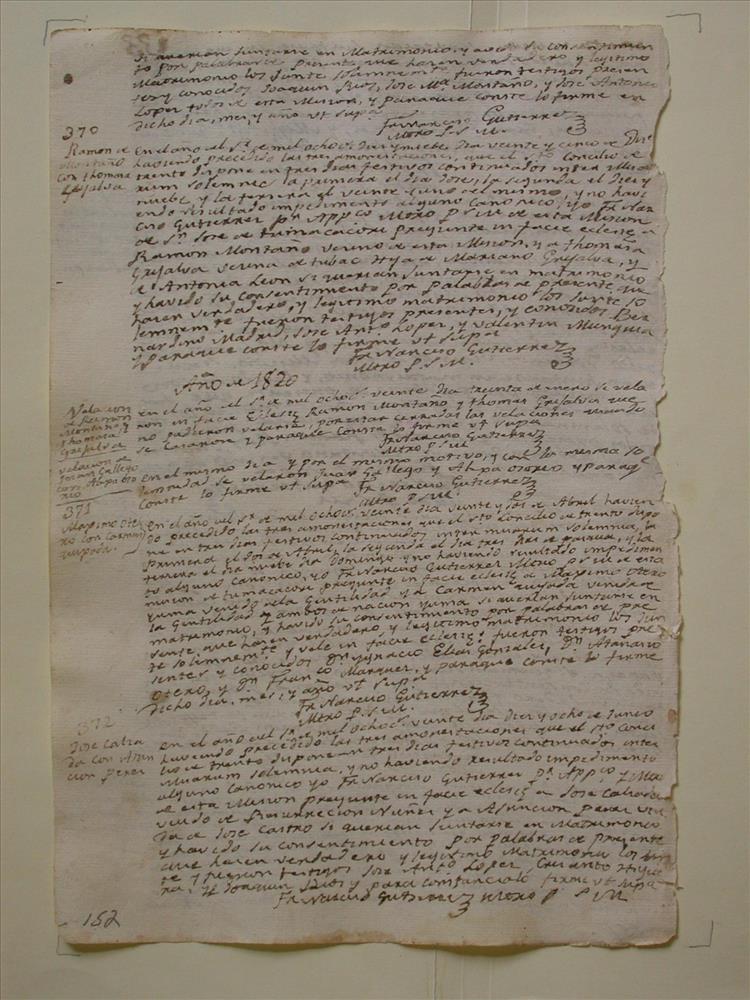 si querian Juntarse en Matrimonio, y avido su consentimien
to por palabras de presente que hacen verdadero, y legitimo
Matrimonio los Junte solemnemte fueron testigos presen
tes y conocidos Joaquin Rios, Jose Ma. Montaño, y Jose Antonio
Lopez todos de esta Mision, y para que conste lo firme en
dicho dia, mes, y año ut supa
Fr. Narciso Gutierrez
Mtro P. S. M.
370
Ramon de
Montaño
con thomasa
Grijalva
en el año del Sr. de mil ochocs. diez y nuebe dia veinte y cinco de Dice
haviendo precedido las tres amonestaciones, que el Sto. Concilio de
trento dispone en tres dias festivos continuados inter Misa
rum solemnes la primera el dia dose, la segunda el diez y
nuebe, y la tercera el veinte y uno del mismo, y no havi
endo resultado impedimento alguno canonico, yo Fr. Nar
ciso Gutierrez pr. Appco Mtro P. S. M. de esta Mision
de Sn. Jose de tumacacori pregunte in facie eclesie a
Ramon Montaño vecino de esta Mision, y a thomasa
Grijalva vecina de tubac Hija de Mariano Grijalva, y
de Antonia Leon si querian Juntarse en matrimonio
y havido su consentimiento por palabras de presente que
hacen verdadero, y legitimo matrimonio los Junte so
lemnemte fueron testigos presentes, y conocidos Ber
nardino Madrid, Jose Anto. Lopez, y Valentin Munguia
y para que conste lo firme ut supa
Fr. Narciso Gutierrez
Mtro P. S. M.
Año de 1820
Velacion
de Ramon
Montaño, y
thomasa
Grijalva
en el año del Sr. de mil ochocs. veinte dia treinta de enero se vela
ron in facie Eclesie Ramon Montaño y thomasa Grijalva que
no pudieron velarse, por estar cerradas las velaciones quando
se casaron y para que conste lo firme ut supa
Fr. Narciso Gutierrez
Mtro P. S. M.
velacion de
Juan Gallego
con Agapa Oto
en el mismo dia y por el mismo motivo, y con la misma so
lemnidad se velaron Juan Gallego y Agapa otero y paraqe
conste lo firme ut supa
Fr. Narciso Gutierrez
Mtro P. S. M.
371
Maximo Ote
ro con Carmen
quijada.
en el año del Sr. de mil ochocs. veinte dia veinte y dos de Abril havien
do precedido las tres amonestaciones que el Sto. Concilio de trento dispo
ne en tres dias festivos continuados inter missarum solemnia, la
primera el dos de Abril, la segunda el dia tres de pascua, y la
tercera el dia nuebe dia Domingo y no haviendo resultado impedimen
to alguno canonico, yo Fr. Narciso Gutierrez Mtro P. S. M. de esta
mision de tumacacori pregunte in facie eclesie a Maximo Otero
yuma venido de la Gentilidad y a Carmen quijada venida de
la Gentilidad y ambos de nacion yuma si querian Juntarse en
matrimonio, y havido su consentimiento por palabras de pre
sente que hacen verdadero y legitimo matrimonio los Jun
te solemnemte y vele in facie eclesie: fueron testigos pre
sentes y conocidos Dn. Ygnacio Elias Gonzales, Dn. Atanacio
Otero, y Dn. Franco Marquez, y para que conste lo firme
dicho dia, mes, y año ut supa
Fr. Narciso Gutierrez
Mtro P. S. M.
372
Jose Calza
da con Asun
cion Perez
en el año del Sr. de mil ochocs. veinte dia diez y ocho de Junio
haviendo precedido las tres amonestaciones que el Sto Conci
lio de trento dispone en tres dias festivos continuados inter
Missarum solemnia, y no haviendo resultado impedimento
alguno canonico yo Fr. Narciso Gutierrez Pr. Appco y Mtro
de esta Mision pregunte in facie eclesie a Jose Calzada
viudo de Resurreccion Nuñez y a Asuncion Perez viu
da de Jose Castro si querian Juntarse en Matrimonio
y havido su consentimiento por palabras de presente
que hacen verdadero y legitimo Matrimonio los Jun
te y fueron testigos Jose Anto. Lopez, Joaquin Rios y para constancia lo firme ut supa
Fr. Narciso Gutierrez Mtro P. S. M.
152